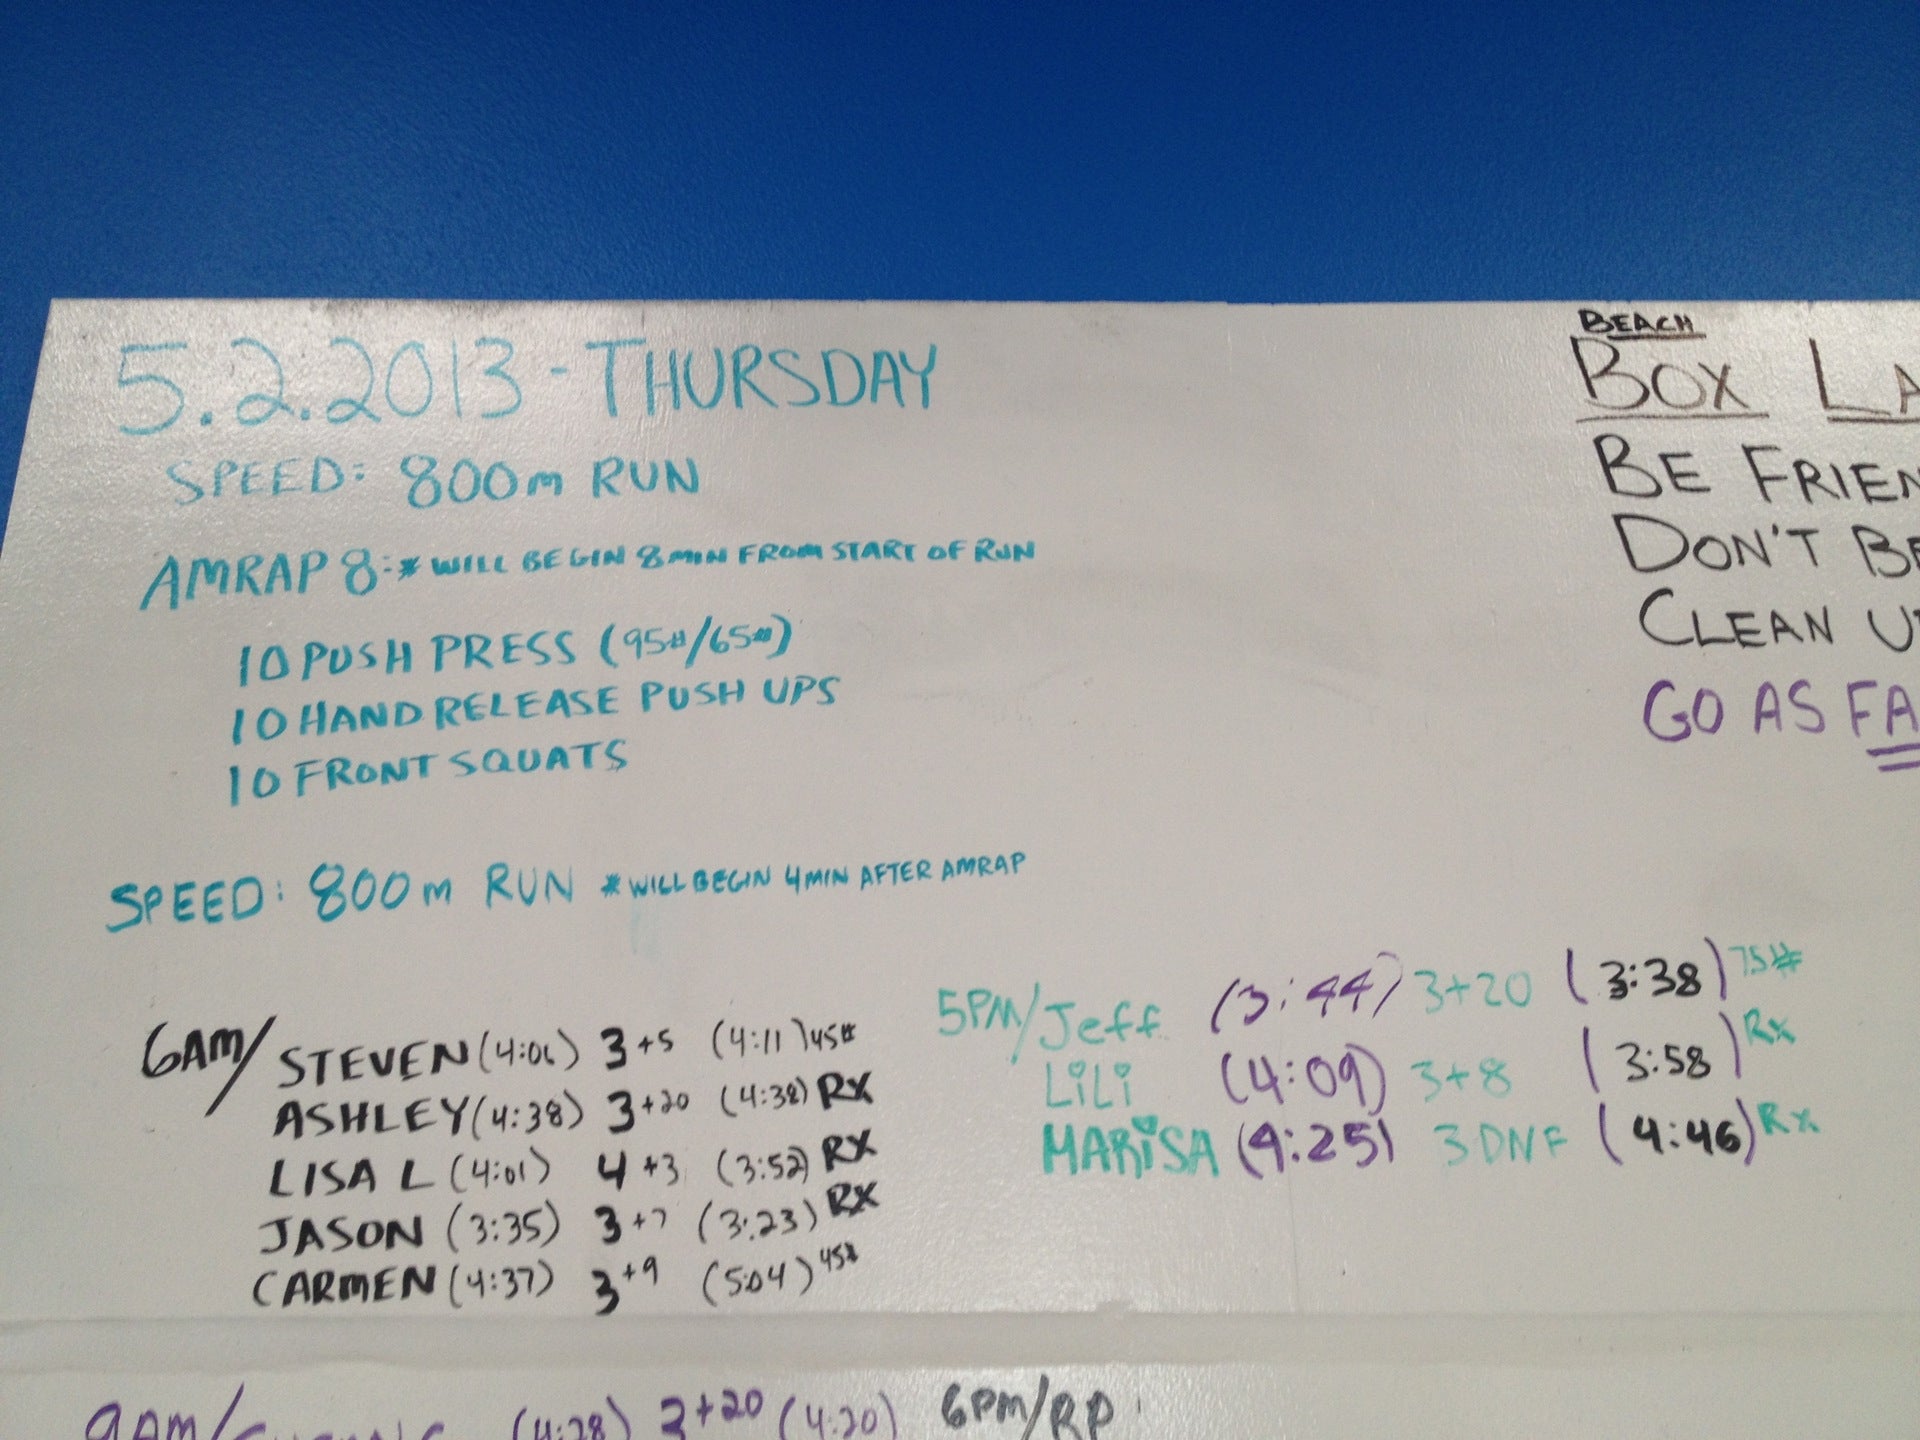 5.2.2013 - THURSDAY
SPEED: 800m RUN
AMRAP 8: * WILL BEGIN 8 MIN FROM START OF RUN
10 PUSH PRESS (95#/65#)
10 HAND RELEASE PUSH UPS
10 FRONT SQUATS
SPEED: 800m RUN * WILL BEGIN 4 MIN AFTER AMRAP
6AM/ STEVEN (4:06) 3 +5 (4:11) 45#
ASHLEY (4:38) 3 +20 (4:38) RX
LISA L (4:01) 4 +3 (3:52) RX
JASON (3:35) 3 +7 (3:23) RX
CARMEN (4:37) 3 +9 (5:04) 45#
9AM/ (4:28) 3+20 (4:20)
5PM/ Jeff (3:44) 3+20 (3:38) 75#
LiLi (4:09) 3+8 (3:58) Rx
MARiSA (4:25) 3 DNF (4:46) Rx
6PM/RP
BEACH
BOX LA
BE FRIEN
DON'T BE
CLEAN U
GO AS FA